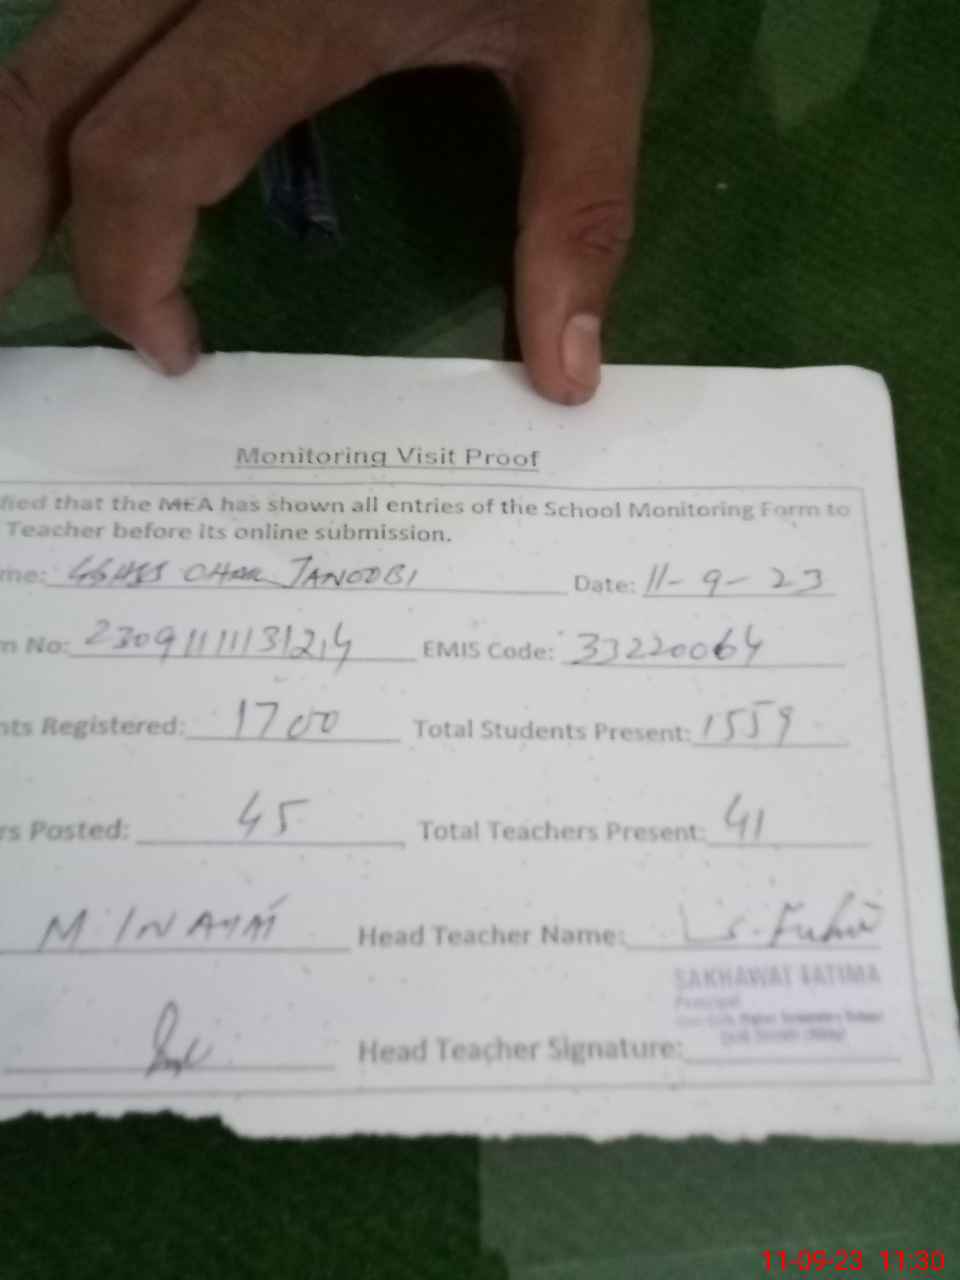 Monitoring Visit Proof
fied that the MEA has shown all entries of the School Monitoring Form to
Teacher before its online submission.
me: GGHSS CHAK JANOOBI Date: 11-9-23
m No: EMIS Code: 33220064
nts Registered: 1700 Total Students Present: 1559
rs Posted: 45 Total Teachers Present: 41
M INAYAT Head Teacher Name:
SAKHAWAT FATIMA
Principal
Head Teacher Signature:
11-09-23 11:30